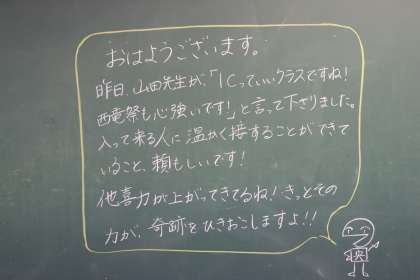 おはようございます。
昨日、山田先生が、「1Cっていいクラスですね！
西竜祭も心強いです！」と言って下さりました。
入って来る人に温かく接することができて
いること、頼もしいです！
他喜力が上がってきてるね！きっとその
力が、奇跡をひきおこしますよ！！